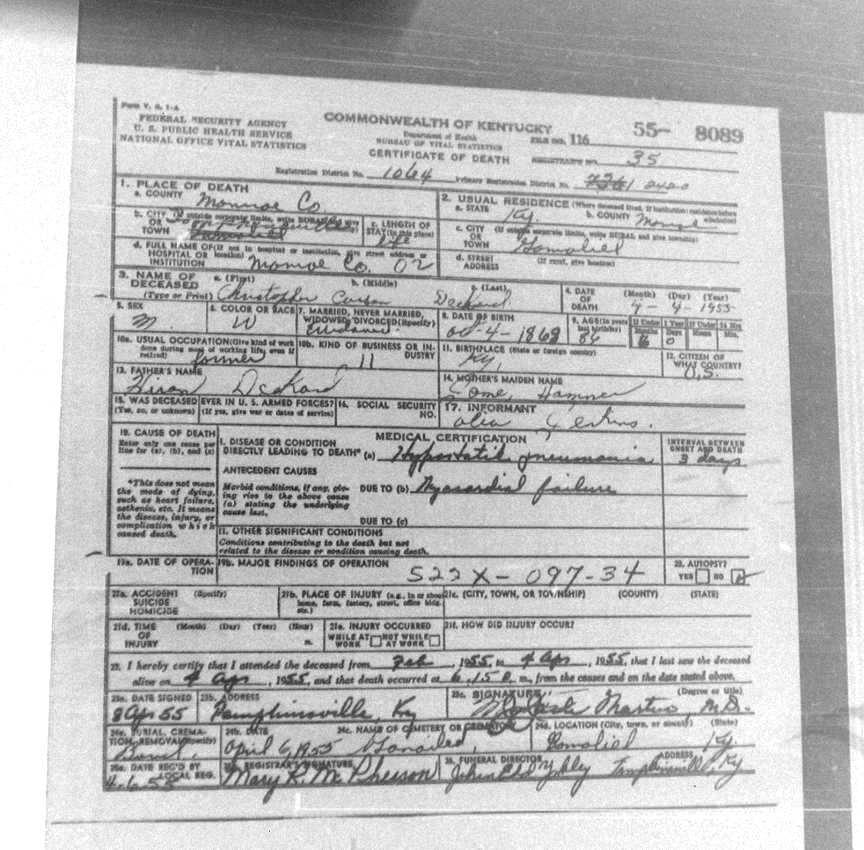 Form V. S. 1-A
FEDERAL SECURITY AGENCY
U. S. PUBLIC HEALTH SERVICE
NATIONAL OFFICE VITAL STATISTICS
COMMONWEALTH OF KENTUCKY
Department of Health
BUREAU OF VITAL STATISTICS
CERTIFICATE OF DEATH
FILE NO. 116 55- 8089
REGISTRAR'S NO. 35
Registration District No. 1064 Primary Registration District No. 2420
1. PLACE OF DEATH
a. COUNTY Monroe Co.
2. USUAL RESIDENCE (Where deceased lived, if institution: residence before admission)
a. STATE Ky. b. COUNTY Monroe
b. CITY (If outside corporate limits, write RURAL and give
OR
TOWN
c. LENGTH OF STAY (in this place) Life
c. CITY (If outside corporate limits, write RURAL and give township)
OR
TOWN Gamaliel
d. FULL NAME OF (If not in hospital or institution, give street address or location)
HOSPITAL OR
INSTITUTION Monroe Co. 02
d. STREET (If rural, give location)
ADDRESS
3. NAME OF DECEASED (Type or Print)
a. (First) b. (Middle) c. (Last)
Christopher Carson Deckard
4. DATE OF DEATH (Month) (Day) (Year)
4 - 4 - 1955
5. SEX M.
6. COLOR OR RACE W
7. MARRIED, NEVER MARRIED, WIDOWED, DIVORCED (Specify)
8. DATE OF BIRTH Oct-4-1868
9. AGE (In years last birthday) 86
If Under 1 Year Months 6 Days 0
If Under 24 Hrs. Hours Min.
10a. USUAL OCCUPATION (Give kind of work done during most of working life, even if retired) farmer
10b. KIND OF BUSINESS OR INDUSTRY 11
11. BIRTHPLACE (State or foreign country) Ky.
12. CITIZEN OF WHAT COUNTRY? U.S.
13. FATHER'S NAME Hiram Deckard
14. MOTHER'S MAIDEN NAME
15. WAS DECEASED EVER IN U. S. ARMED FORCES?
(Yes, no, or unknown) (If yes, give war or dates of service)
16. SOCIAL SECURITY NO.
17. INFORMANT
18. CAUSE OF DEATH
Enter only one cause per line for (a), (b), and (c)
*This does not mean the mode of dying, such as heart failure, asthenia, etc. It means the disease, injury, or complication which caused death.
MEDICAL CERTIFICATION
INTERVAL BETWEEN ONSET AND DEATH
I. DISEASE OR CONDITION
DIRECTLY LEADING TO DEATH* (a) Hypostatik pneumonia 3 days
ANTECEDENT CAUSES
Morbid conditions, if any, giving rise to the above cause (a) stating the underlying cause last.
DUE TO (b) Myocardial failure
DUE TO (c)
II. OTHER SIGNIFICANT CONDITIONS
Conditions contributing to the death but not
related to the disease or condition causing death.
19a. DATE OF OPERATION
19b. MAJOR FINDINGS OF OPERATION
522X-097-34
20. AUTOPSY?
YES NO
21a. ACCIDENT SUICIDE HOMICIDE (Specify)
21b. PLACE OF INJURY (e.g., in or about home, farm, factory, street, office bldg., etc.)
21c. (CITY, TOWN, OR TOWNSHIP) (COUNTY) (STATE)
21d. TIME OF INJURY (Month) (Day) (Year) (Hour) m.
21e. INJURY OCCURRED
WHILE AT WORK NOT WHILE AT WORK
21f. HOW DID INJURY OCCUR?
22. I hereby certify that I attended the deceased from Feb, 1955, to 4 Apr, 1955, that I last saw the deceased
alive on 4 Apr, 1955, and that death occurred at 6:15 P. m., from the causes and on the date stated above.
23a. DATE SIGNED 8 Apr 55
23b. ADDRESS Tompkinsville, Ky
23c. SIGNATURE (Degree or title) Martin, M.D.
24a. BURIAL, CREMATION, REMOVAL (Specify) Burial
24b. DATE April 6, 1955
24c. NAME OF CEMETERY OR CREMATORY Gamaliel
24d. LOCATION (City, town, or county) (State) Gamaliel Ky
25a. DATE REC'D BY LOCAL REG. 4-6-55
25b. REGISTRAR'S SIGNATURE Mary K. McPherson
26. FUNERAL DIRECTOR ADDRESS Tompkinsville, Ky